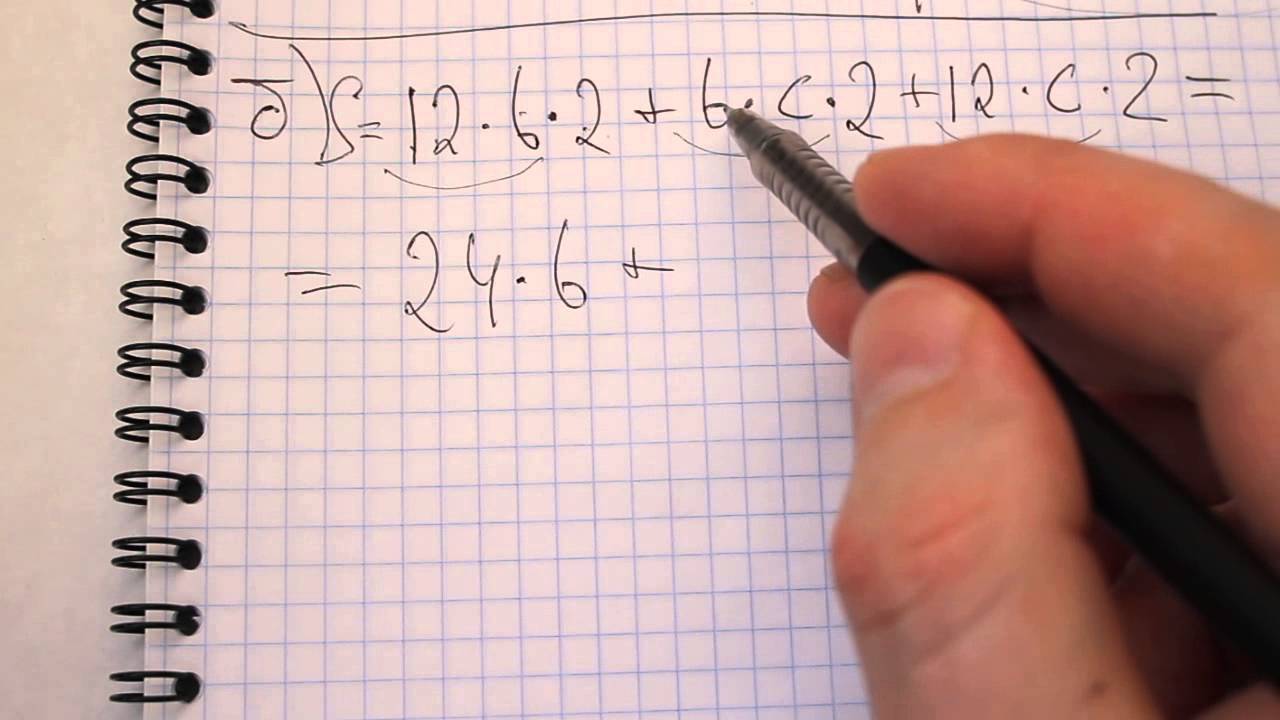 б) S = 12 · b · 2 + b · c · 2 + 12 · c · 2 =
= 24 · b +